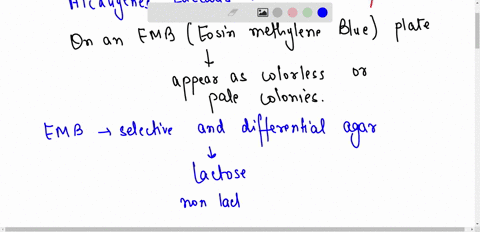 On an EMB (Eosin methylene Blue) plate
↓
appear as colorless or
pale colonies.
EMB → selective and differential agar
↓
Lactose
non lact